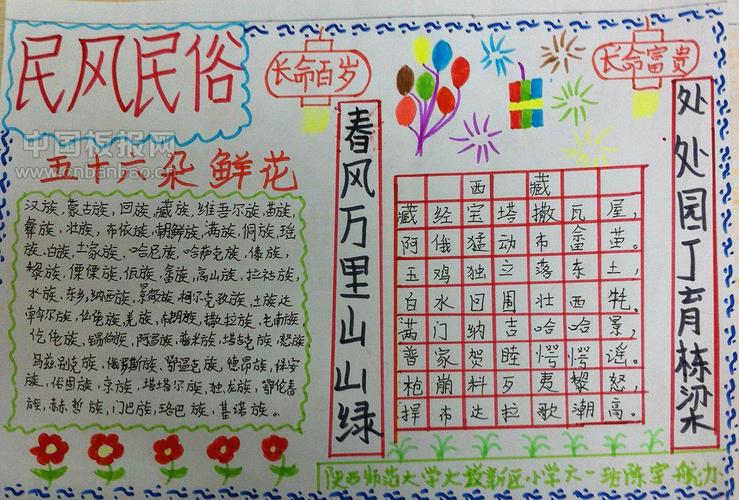 民风民俗
中国板报网
www.cnbanbao.cn
五十一朵鲜花
汉族,蒙古族,回族,藏族,维吾尔族,苗族,
彝族,壮族,布依族,朝鲜族,满族,侗族,瑶
族,白族,土家族,哈尼族,哈萨克族,傣族,
黎族,傈僳族,佤族,畲族,高山族,拉祜族,
水族,东乡,纳西族,景颇族,柯尔克孜族,土族,达
斡尔族,仫佬族,羌族,布朗族,撒拉族,毛南族,
仡佬族,锡伯族,阿昌族,普米族,塔吉克族,怒族,
乌兹别克族,俄罗斯族,鄂温克族,德昂族,保安
族,裕固族,京族,塔塔尔族,独龙族,鄂伦春
族,赫哲族,门巴族,珞巴族,基诺族。
长命百岁
春风万里山山绿
长命富贵
西藏
藏经宝塔撒瓦屋,
阿俄猛动布畲苗。
玉鸡独立落东土,
白水回围壮西牝。
满门纳吉哈哈景,
普家贺睦愕愕谣。
枪崩料歹夷黎怒,
捍布达拉歌潮高。
处处园丁育栋梁
陕西师范大学大教新区小学六一班陈宝